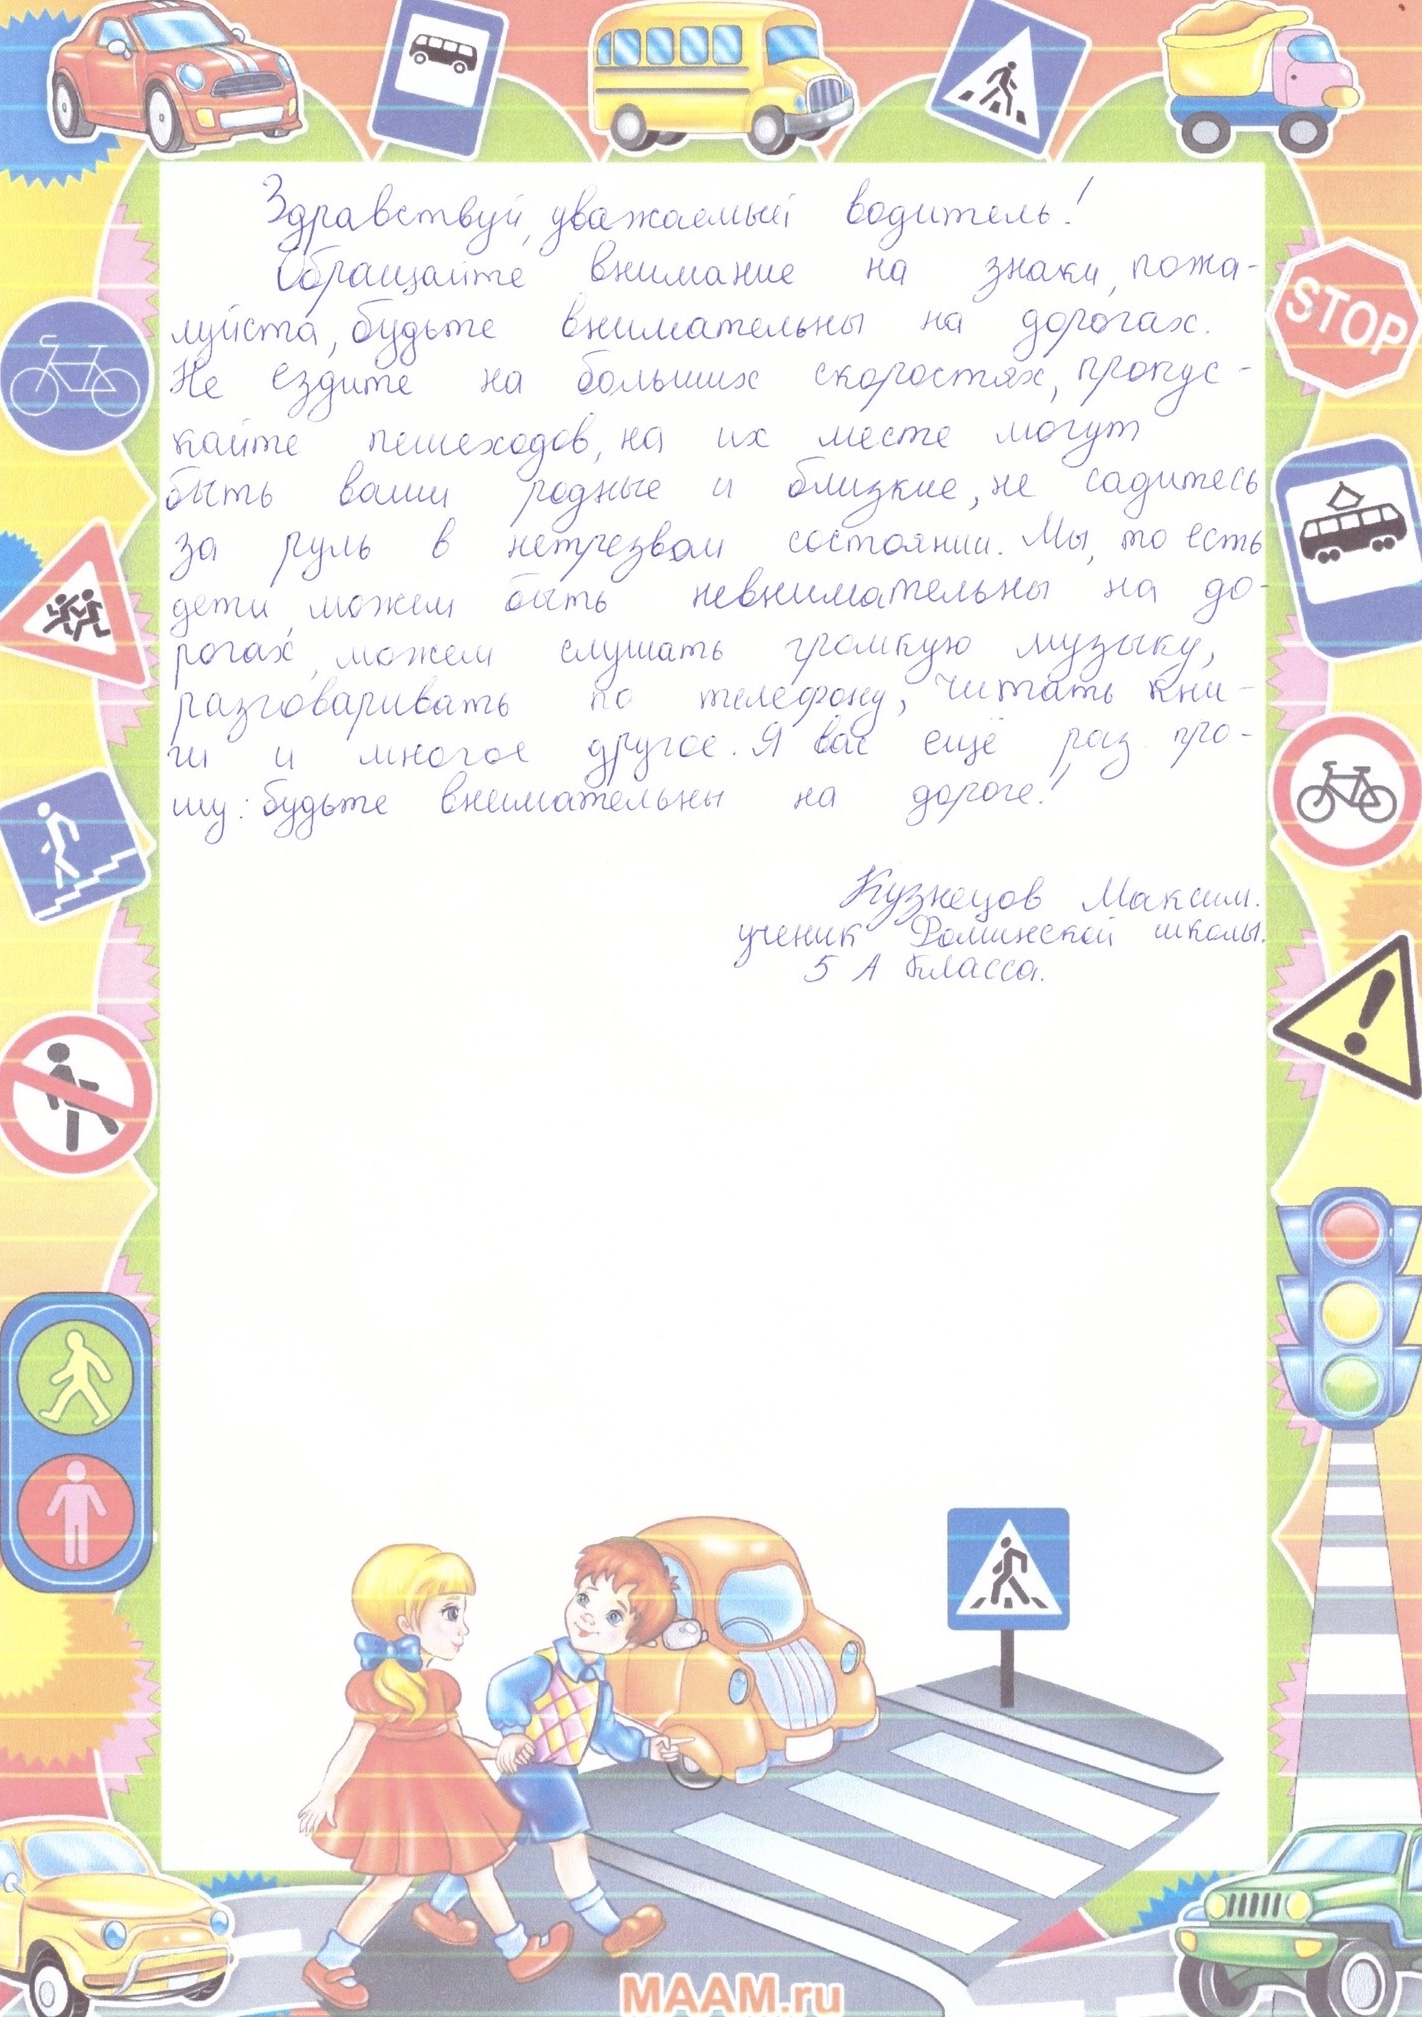 Здравствуй, уважаемый водитель!
Обращайте внимание на знаки, пожа-
луйста, будьте внимательны на дорогах.
Не ездите на больших скоростях, пропус-
кайте пешеходов, на их месте могут
быть ваши родные и близкие, не садитесь
за руль в нетрезвом состоянии. Мы, то есть
дети, можем быть невнимательны на до-
рогах, можем слушать громкую музыку,
разговаривать по телефону, читать кни-
ги и многое другое. Я вас ещё раз про-
шу: будьте внимательны на дороге!
Кузнецов Максим.
ученик Фоминской школы.
5 А класса.
STOP
MAAM.ru